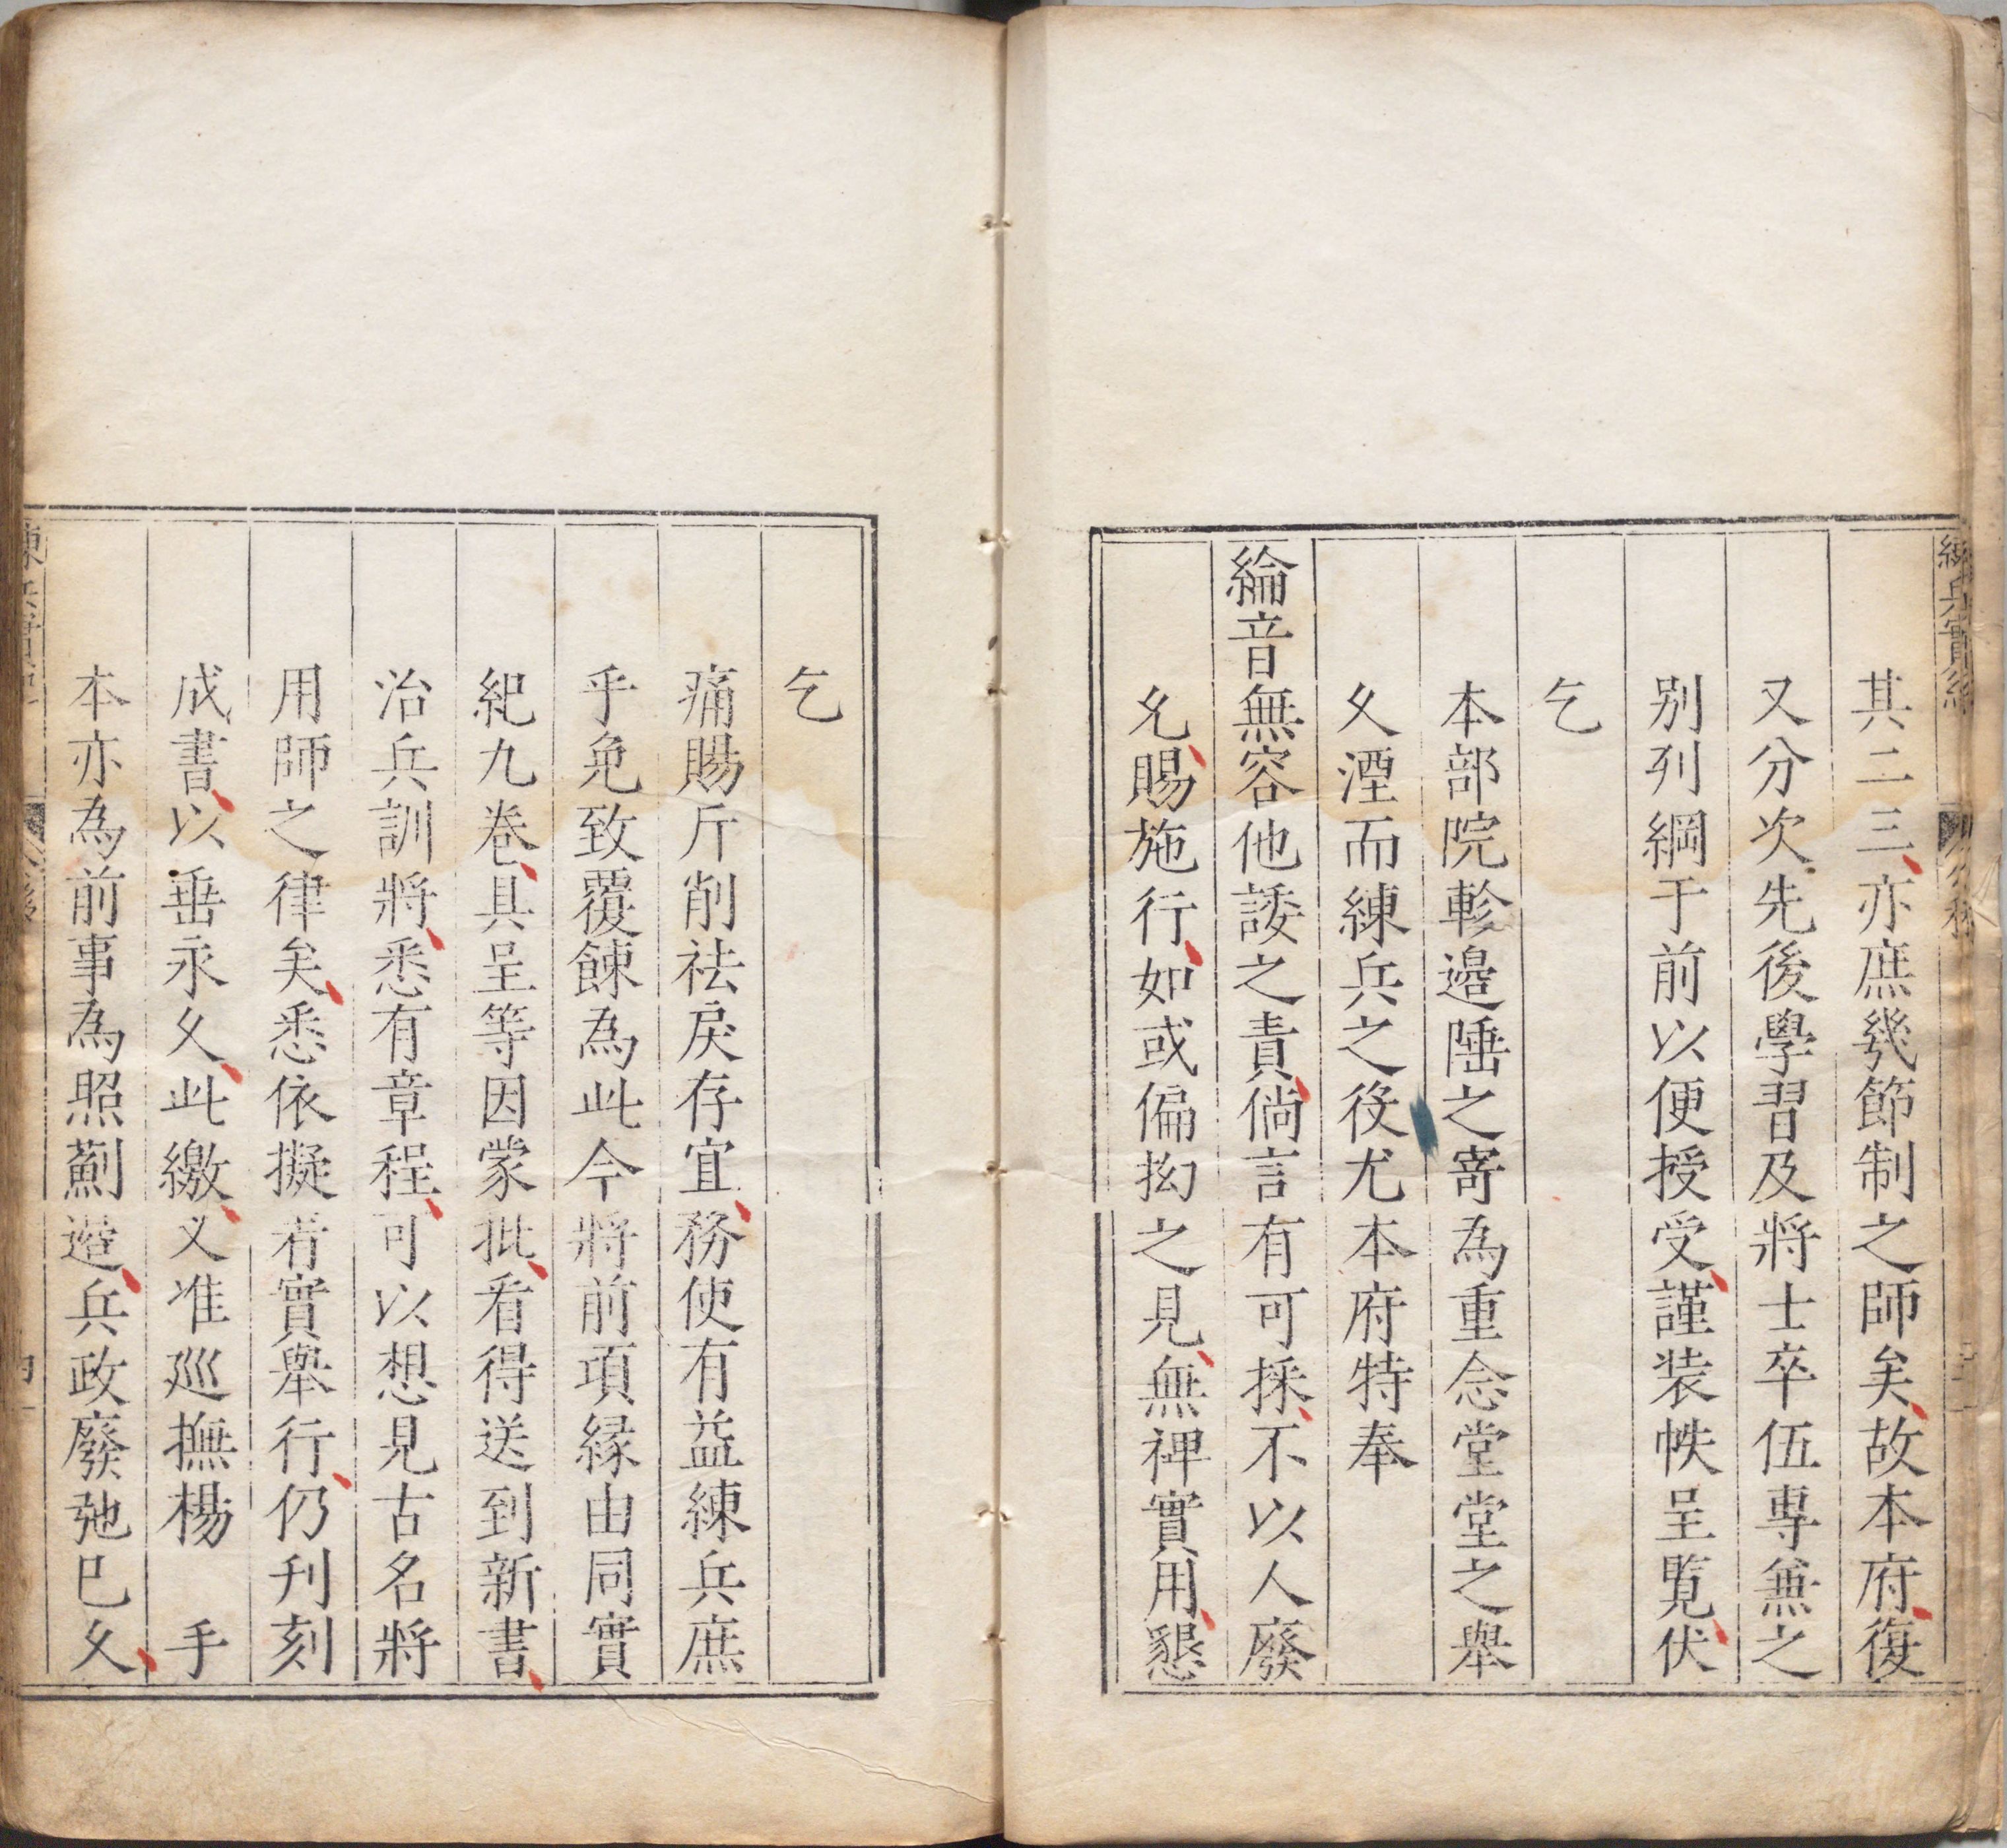 練兵實紀
其二三亦庶幾節制之師矣故本府復
又分次先後學習及將士卒伍專兼之
別列綱于前以便授受謹装帙呈覧伏
乞
本部院軫邉陲之寄為重念堂堂之舉
乆湮而練兵之役尤本府特奉
綸音無容他諉之責倘言有可採不以人廢
允賜施行如或偏拗之見無裨實用懇
乞
痛賜斤削祛戾存宜務使有益練兵庶
乎免致覆餗為此今將前項縁由同實
紀九卷具呈等因蒙批看得送到新書
治兵訓將悉有章程可以想見古名將
用師之律矣悉依擬着實舉行仍刋刻
成書以垂永乆此繳又准廵撫楊　手
本亦為前事為照薊邉兵政廢弛巳乆